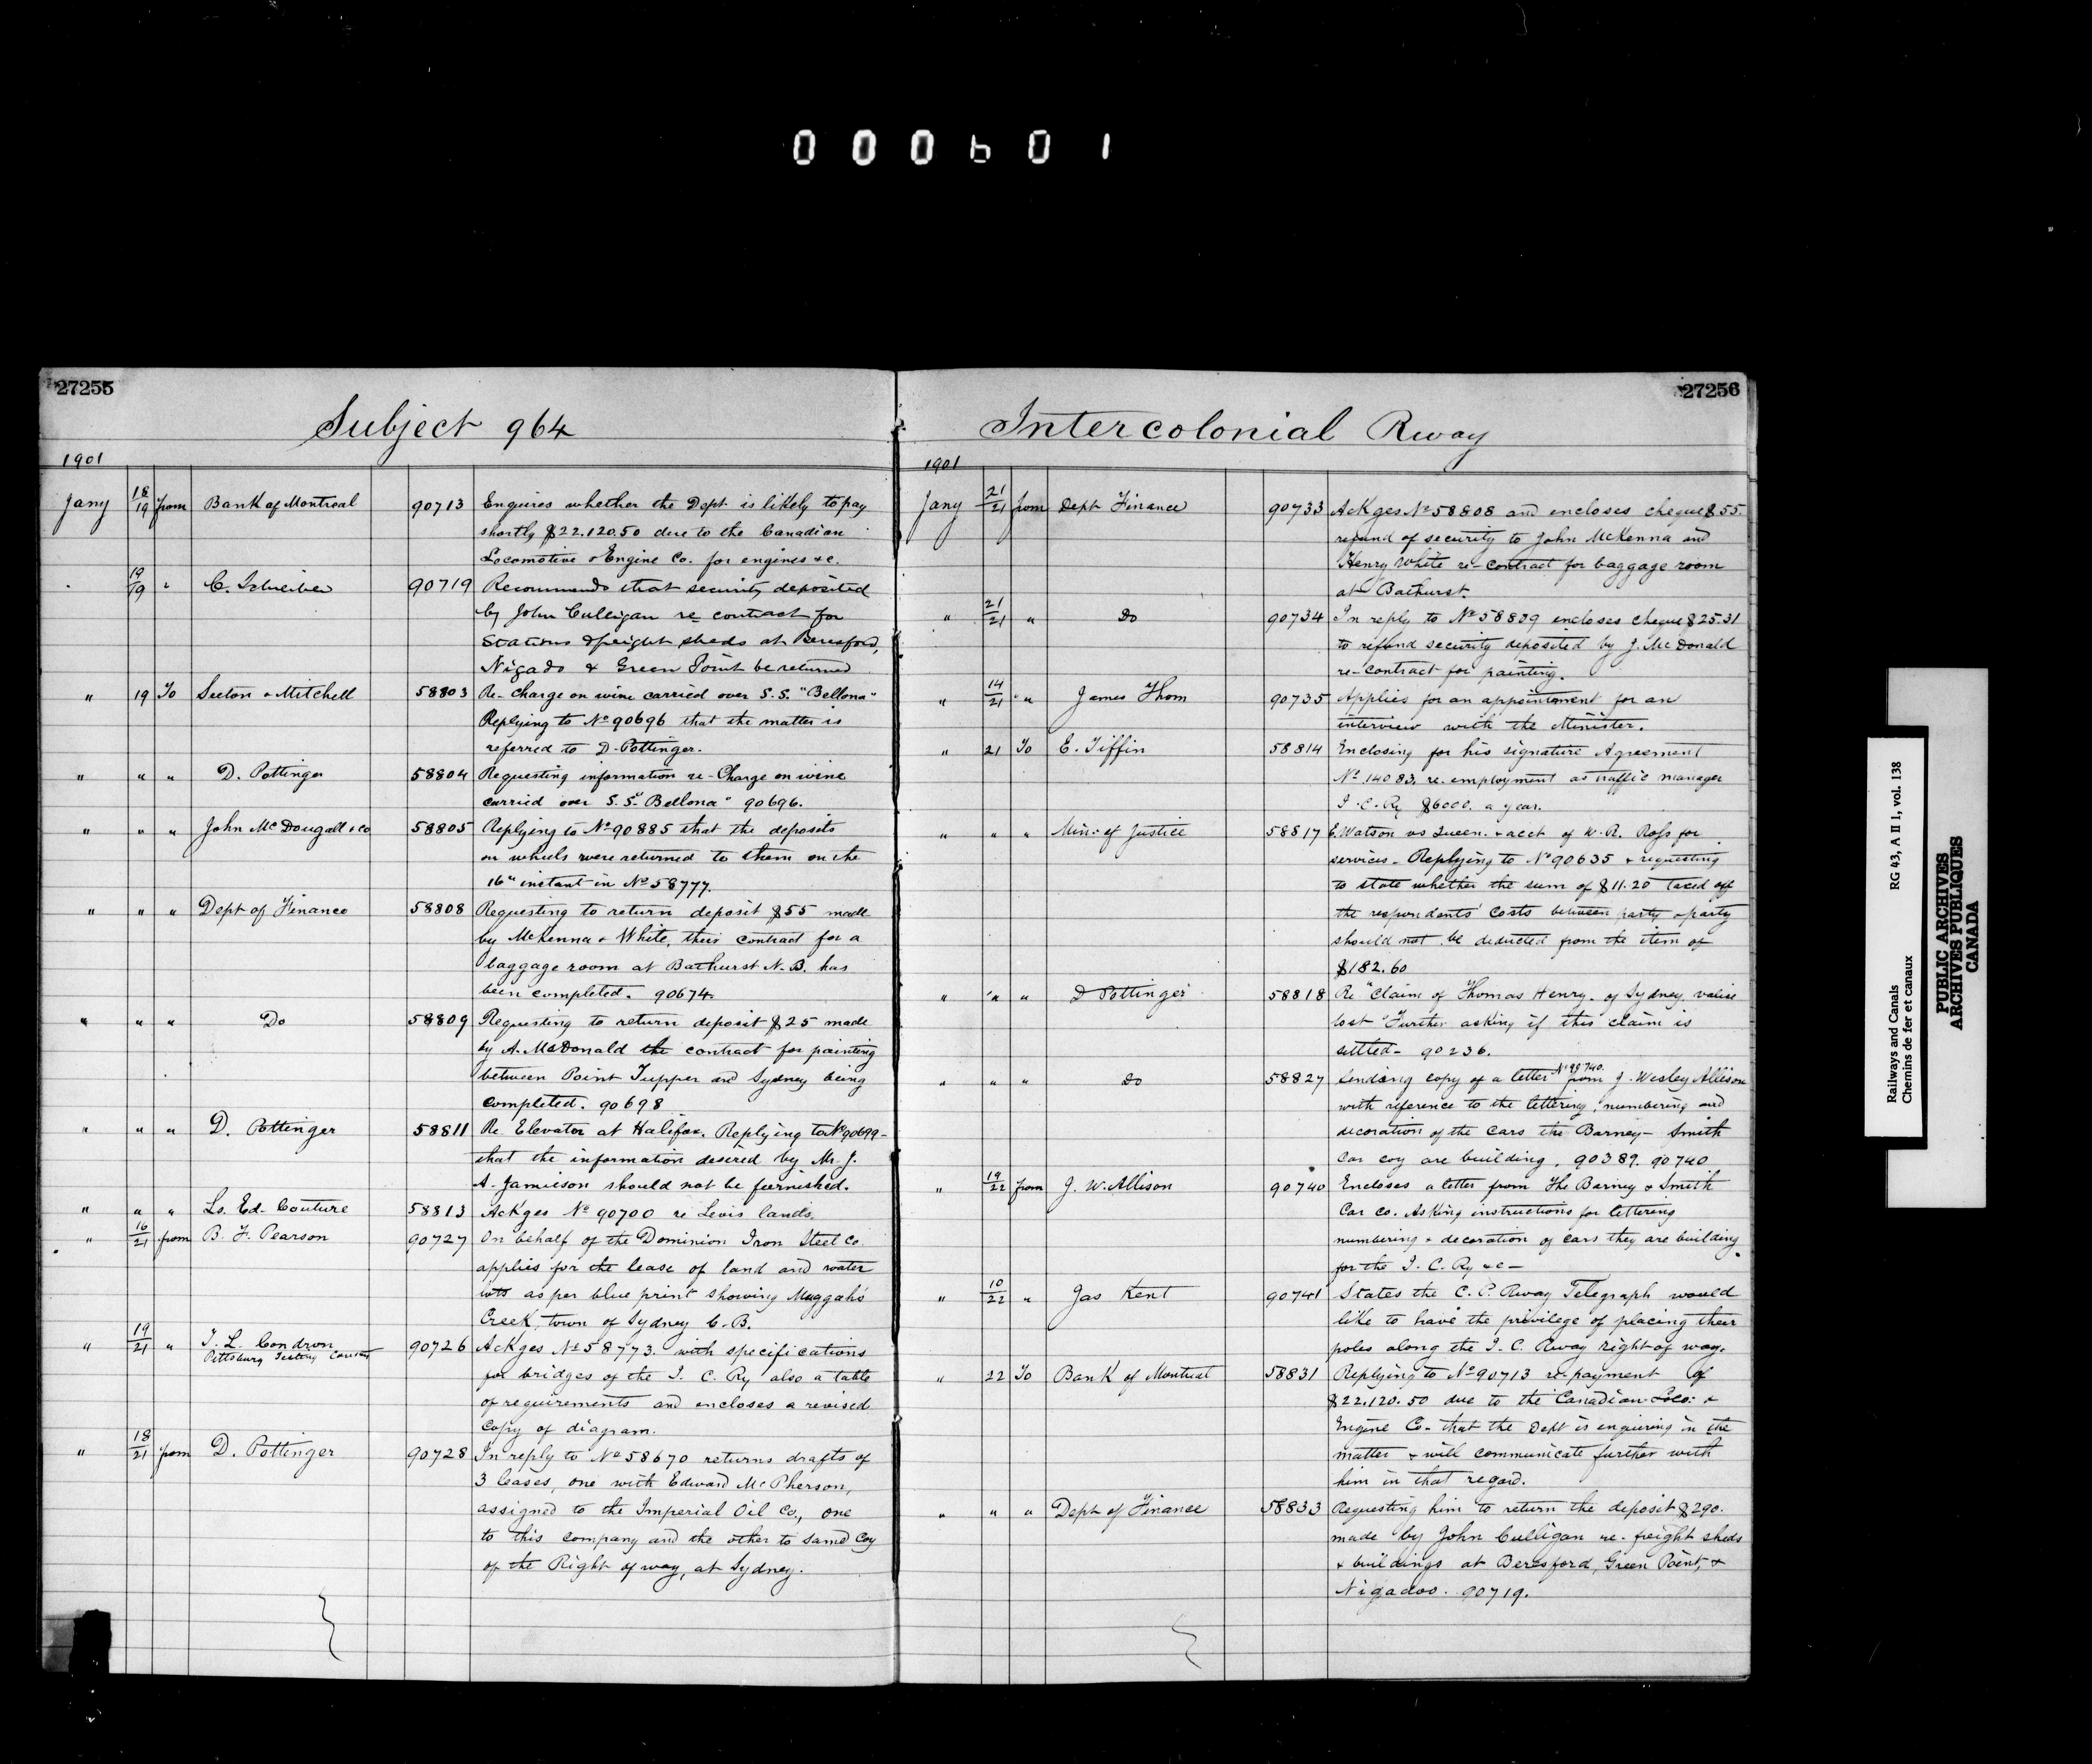 000601
27255
Subject 964
1901
Jany 18/19 from Bank of Montreal 90713 Enquires whether the Dept is likely to pay
shortly $22.120.50 due to the Canadian
Locomotive & Engine Co. for engines &c.
19/19 " C. Schreiber 90719 Recommends that security deposited
by John Culligan re contract for
Stations & freight sheds at Beresford,
Nigado & Green Point be returned
" 19 To Seeton & Mitchell 58803 Re- Charge on wine carried over S.S. "Bellona"
Replying to No 90696 that the matter is
referred to D. Pottinger.
" " " D. Pottinger 58804 Requesting information re- Charge on wine
carried over S.S. "Bellona" 90696.
" " " John McDougall & Co 58805 Replying to No 90885 that the deposits
on wheels were returned to them on the
16" instant in No 58777.
" " " Dept of Finance 58808 Requesting to return deposit $55 made
by McKenna & White, their contract for a
baggage room at Bathurst N.B. has
been completed. 90674
" " " Do 58809 Requesting to return deposit $25 made
by A. McDonald the contract for painting
between Point Tupper and Sydney being
completed. 90698
" " " D. Pottinger 58811 Re. Elevator at Halifax. Replying to No 90699-
that the information desired by Mr. J.
A. Jamieson should not be furnished.
" " " Ls. Ed. Couture 58813 Ackges No 90700 re Levis lands.
" 16/21 from B. F. Pearson 90727 On behalf of the Dominion Iron Steel Co.
applies for the lease of land and water
lots as per blue print showing Muggah's
Creek, town of Sydney C.B.
" 19/21 " T. L. Condron 90726 Ackges No 58773. with specifications
Pittsburg Testing
for bridges of the I. C. Ry also a table
of requirements and encloses a revised
Copy of diagram.
" 18/21 from D. Pottinger 90728 In reply to No 58670 returns drafts of
3 leases, one with Edward McPherson,
assigned to the Imperial Oil Co., one
to this company and the other to same Coy
of the Right of way, at Sydney.
27256
Intercolonial Rway
1901
Jany 21/21 from Dept Finance 90733 Ackges No 58808 and encloses cheque $55.
refund of security to John McKenna and
Henry White re- contract for baggage room
at Bathurst.
" 21/21 " Do 90734 In reply to No 58809 encloses cheque $25.31
to refund security deposited by J. McDonald
re- contract for painting.
" 14/21 " " James Thom 90735 Applies for an appointment for an
interview with the Minister.
" 21 To E. Tiffin 58814 Enclosing for his signature Agreement
No 14083. re. employment as traffic manager
I. C. Ry $6000. a year.
" " " Min. of Justice 58817 E. Watson vs Queen. & acct of W. R. Ross for
services - Replying to No 90635 & requesting
to state whether the sum of $11.20 taxed off
the respondents' costs between party & party
should not be deducted from the item of
$182.60
" " " D Pottinger 58818 Re "Claim of Thomas Henry. of Sydney. valise
lost" Further asking if this claim is
settled- 90236.
" " " Do 58827 Sending copy of a letter No 90740. from J. Wesley Allison
with reference to the lettering, numbering and
decoration of the cars the Barney- Smith
Car coy are building. 90389. 90740
" 19/22 from J. W. Allison 90740 Encloses a letter from The Barney & Smith
Car Co. Asking instructions for lettering
numbering & decoration of cars they are building
for the I. C. Ry &c-
" 10/22 " Jas Kent 90741 States the C. P. Rway Telegraph would
like to have the privilege of placing their
poles along the I. C. Rway right of way.
" 22 To Bank of Montreal 58831 Replying to No 90713 re. payment of
$22.120.50 due to the Canadian Loco: &
Engine Co- that the Dept is enquiring in the
matter & will communicate further with
him in that regard.
" " " Dept of Finance 58833 Requesting him to return the deposit $290.
made by John Culligan re- freight sheds
& buildings at Beresford, Green Point, &
Nigadoo. 90719.
Railways and Canals RG 43, A II 1, vol. 138
Chemins de fer et canaux
PUBLIC ARCHIVES
ARCHIVES PUBLIQUES
CANADA